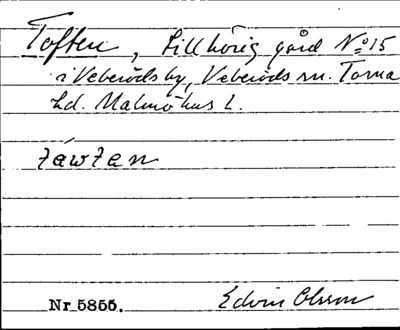 Toften, tillhörig gård No 15
i Veberöds by, Veberöds sn. Torna
hd. Malmöhus L.
táwtan
Nr 5855.
Edvin Olsson